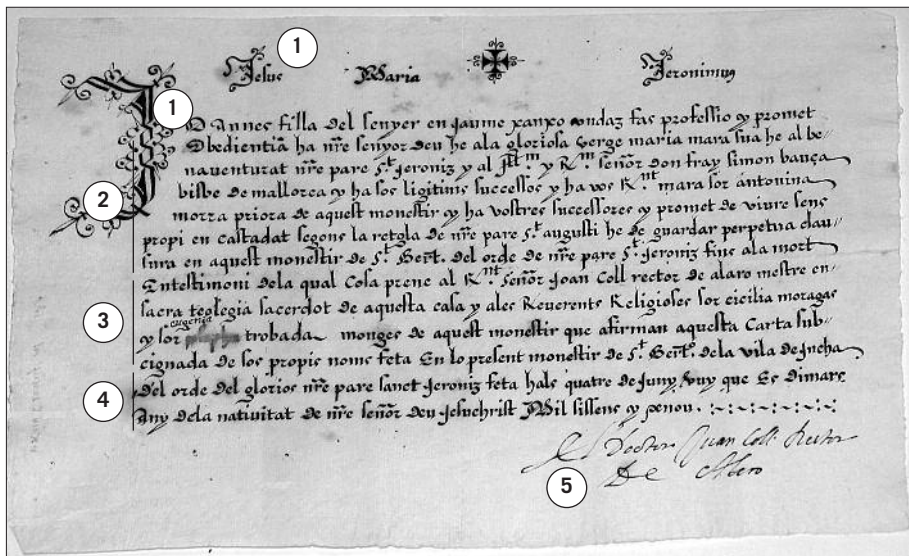 1
Jesus Maria Jeronimus
1
JO Annes filla del senyer en Jaume xanxo ondaz fas professio y promet
Obedientiã ha nr̃e senyor deu he ala gloriosa verge maria mara sua he al be-
nauenturat nr̃e pare s.t Jeroniz y al Ill.m y R.m señor don fray simon bauça
2
bisbe de mallorca y ha sos ligitims successos y ha vos R.nt mara sor antonina
morra priora de aquest monestir y ha vostres successores y promet de viure sens
propi en castadat segons la retgola de nr̃e pare s.t augusti he de guardar perpetua clau-
sura en aquest monestir de s.t Bert. del orde de nr̃e pare s.t Jeroniz fins ala mort
En testimoni dela qual Cosa prene al R.nt señor Joan Coll rector de alaro mestre en
sacra teologia sacerdot de aquesta casa y ales Reverents Religioses sor cicilia moragas
3
eugenia
y sor trobada monges de aquest monestir que afirman aquesta Carta sub-
cignada de sos propis noms feta En lo present monestir de s.t Bert.o dela vila de Incha
4
del orde del glorios nr̃e pare sanct Jeroniz feta hals quatre de Juny vuy que Es Dimars
Any dela nativitat de nr̃e señor deu Jesuchrist Mil sissens y xenou.
El Doctor Juan Coll Rector
De Alero
5